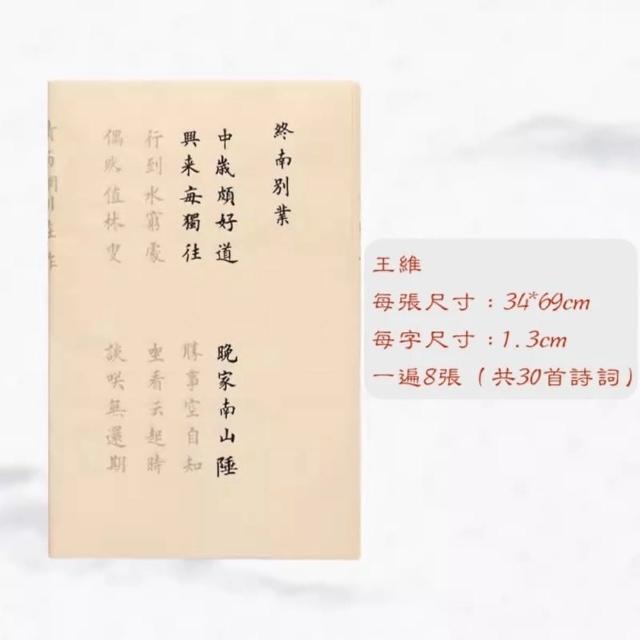 終南別業
中歳頗好道
晚家南山陲
興来毎獨往
勝事空自知
行到水窮處
坐看云起時
偶然值林叟
談咲無還期
王維
每張尺寸：34*69cm
每字尺寸：1.3cm
一遍8張（共30首詩詞）